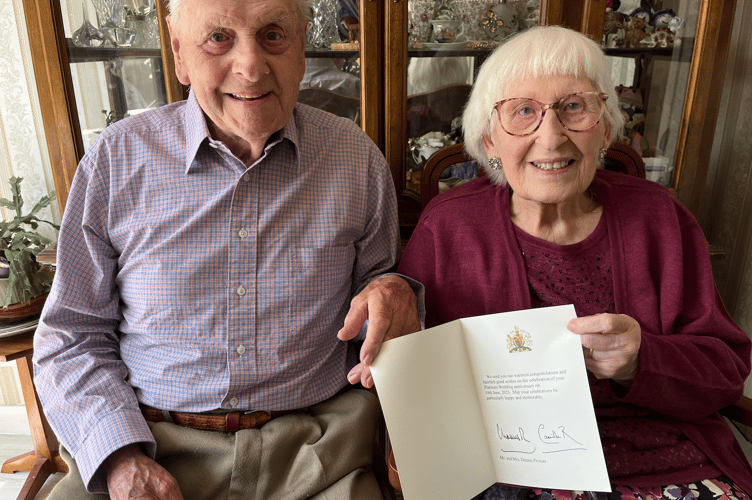 We send you our warmest congratulations and
heartfelt good wishes on the celebration of your
Platinum Wedding anniversary on
June, 2025. May your celebrations be
particularly happy and memorable.
Charles R Camilla R
Mr. and Mrs. Dennis